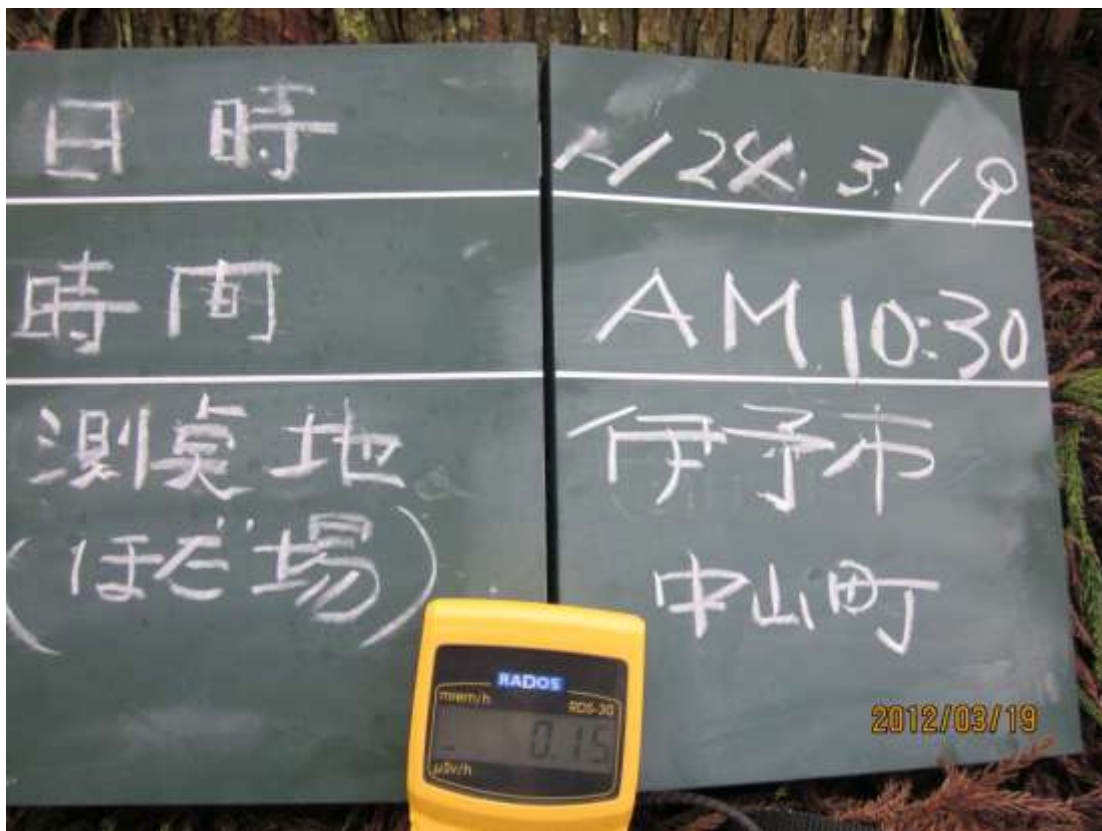 日時 H24.3.19
時間 AM 10:30
測点地 伊予市
(ほだ場) 中山町
RADOS
mrem/h RDS-30
0.15
µSv/h
2012/03/19